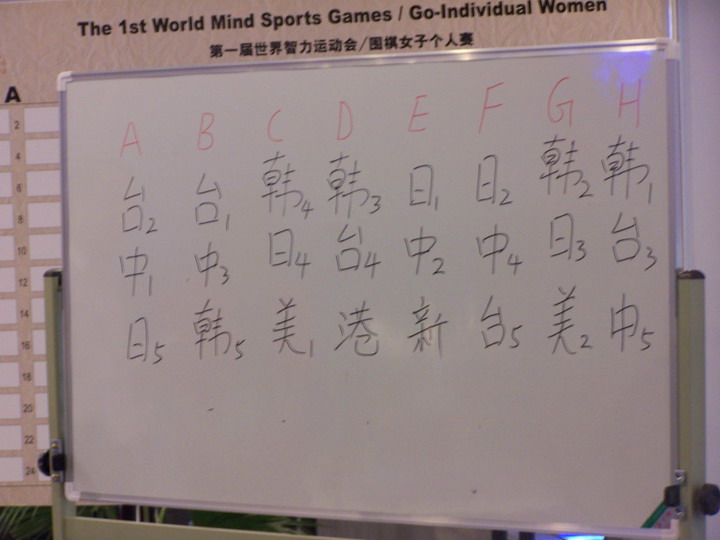 The 1st World Mind Sports Games / Go-Individual Women
第一届世界智力运动会/围棋女子个人赛
A
2
4
6
8
10
12
14
16
18
20
22
24
A B C D E F G H
台2 台1 韩4 韩3 日1 日2 韩2 韩1
中1 中3 日4 台4 中2 中4 日3 台3
日5 韩5 美1 港 新 台5 美2 中5